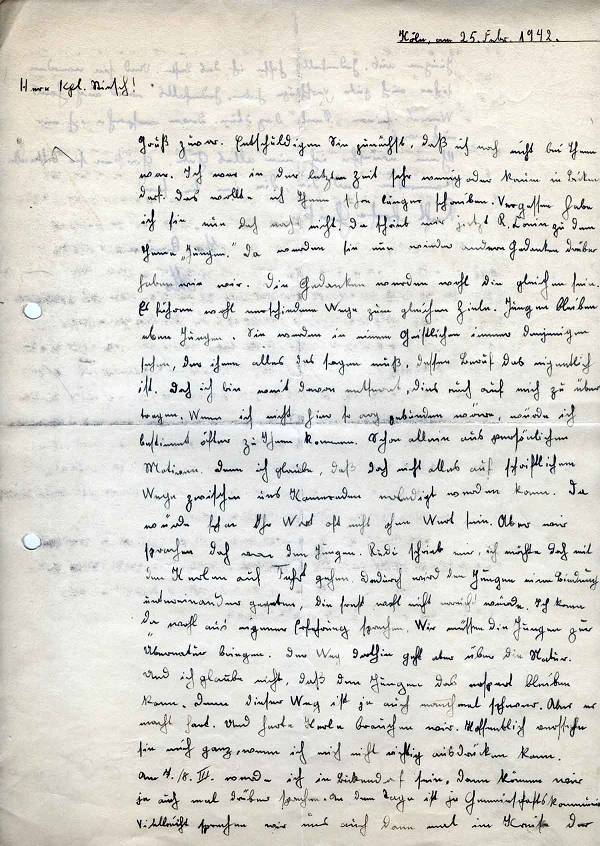 Köln, am 25. Febr. 1942.
Herr Kpl. Kirsch!
Grüß zuvor. Entschuldigen Sie zunächst, daß ich noch nicht bei Ihnen
war. Ich war in der letzten Zeit sehr wenig oder kaum in Birken
dorf. Das wollte ich Ihnen schon länger schreiben. Vergessen habe
ich sie nun doch noch nicht. Da schrieb mir jetzt R. zu dem
Thema „Jungen." Da werden sie nun wieder andere Gedanken drüber
haben wie wir. Die Gedanken werden wohl die gleichen sein.
Es führen wohl verschiedene Wege zum gleichen Ziele. Jungen bleiben
eben Jungen. Sie werden in einem Geistlichen immer denjenigen
sehen, der ihnen alles das sagen muß, dessen Beruf das eigentlich
ist. Doch ich bin weit davon entfernt, dies auch auf mich zu über
tragen. Wenn ich nicht hier so arg gebunden wäre, würde ich
bestimmt öfter zu Ihnen kommen. Schon allein aus persönlichen
Motiven. Denn ich glaube, daß doch nicht alles auf schriftlichem
Wege zwischen uns Kameraden erledigt werden kann. Da
würde schon Ihr Wort oft nicht ohne Wert sein. Aber wir
sprachen doch von den Jungen. Rudi schrieb mir, ich möchte doch mit
den Kerlen auf Fahrt gehen. Dadurch wird den Jungen eine Bindung
untereinander gegeben, die sonst wohl nicht erreicht würde. Ich kann
da wohl aus eigener Erfahrung sprechen. Wir müssen die Jungen zur
Übernatur bringen. Der Weg dorthin geht aber über die Natur.
Und ich glaube nicht, daß den Jungen das erspart bleiben
kann. Denn dieser Weg ist ja auch manchmal schwer. Aber er
macht hart. Und harte Kerle brauchen wir. Hoffentlich verstehen
sie mich ganz, wenn ich mich nicht richtig ausdrücken kann.
Am 7./8. III. werde ich in Birkendorf sein, dann können wir
ja auch mal drüber sprechen. An dem Tage ist ja Gemeinschaftskommunion
Vielleicht sprechen wir uns auch dann mal im Kreise der